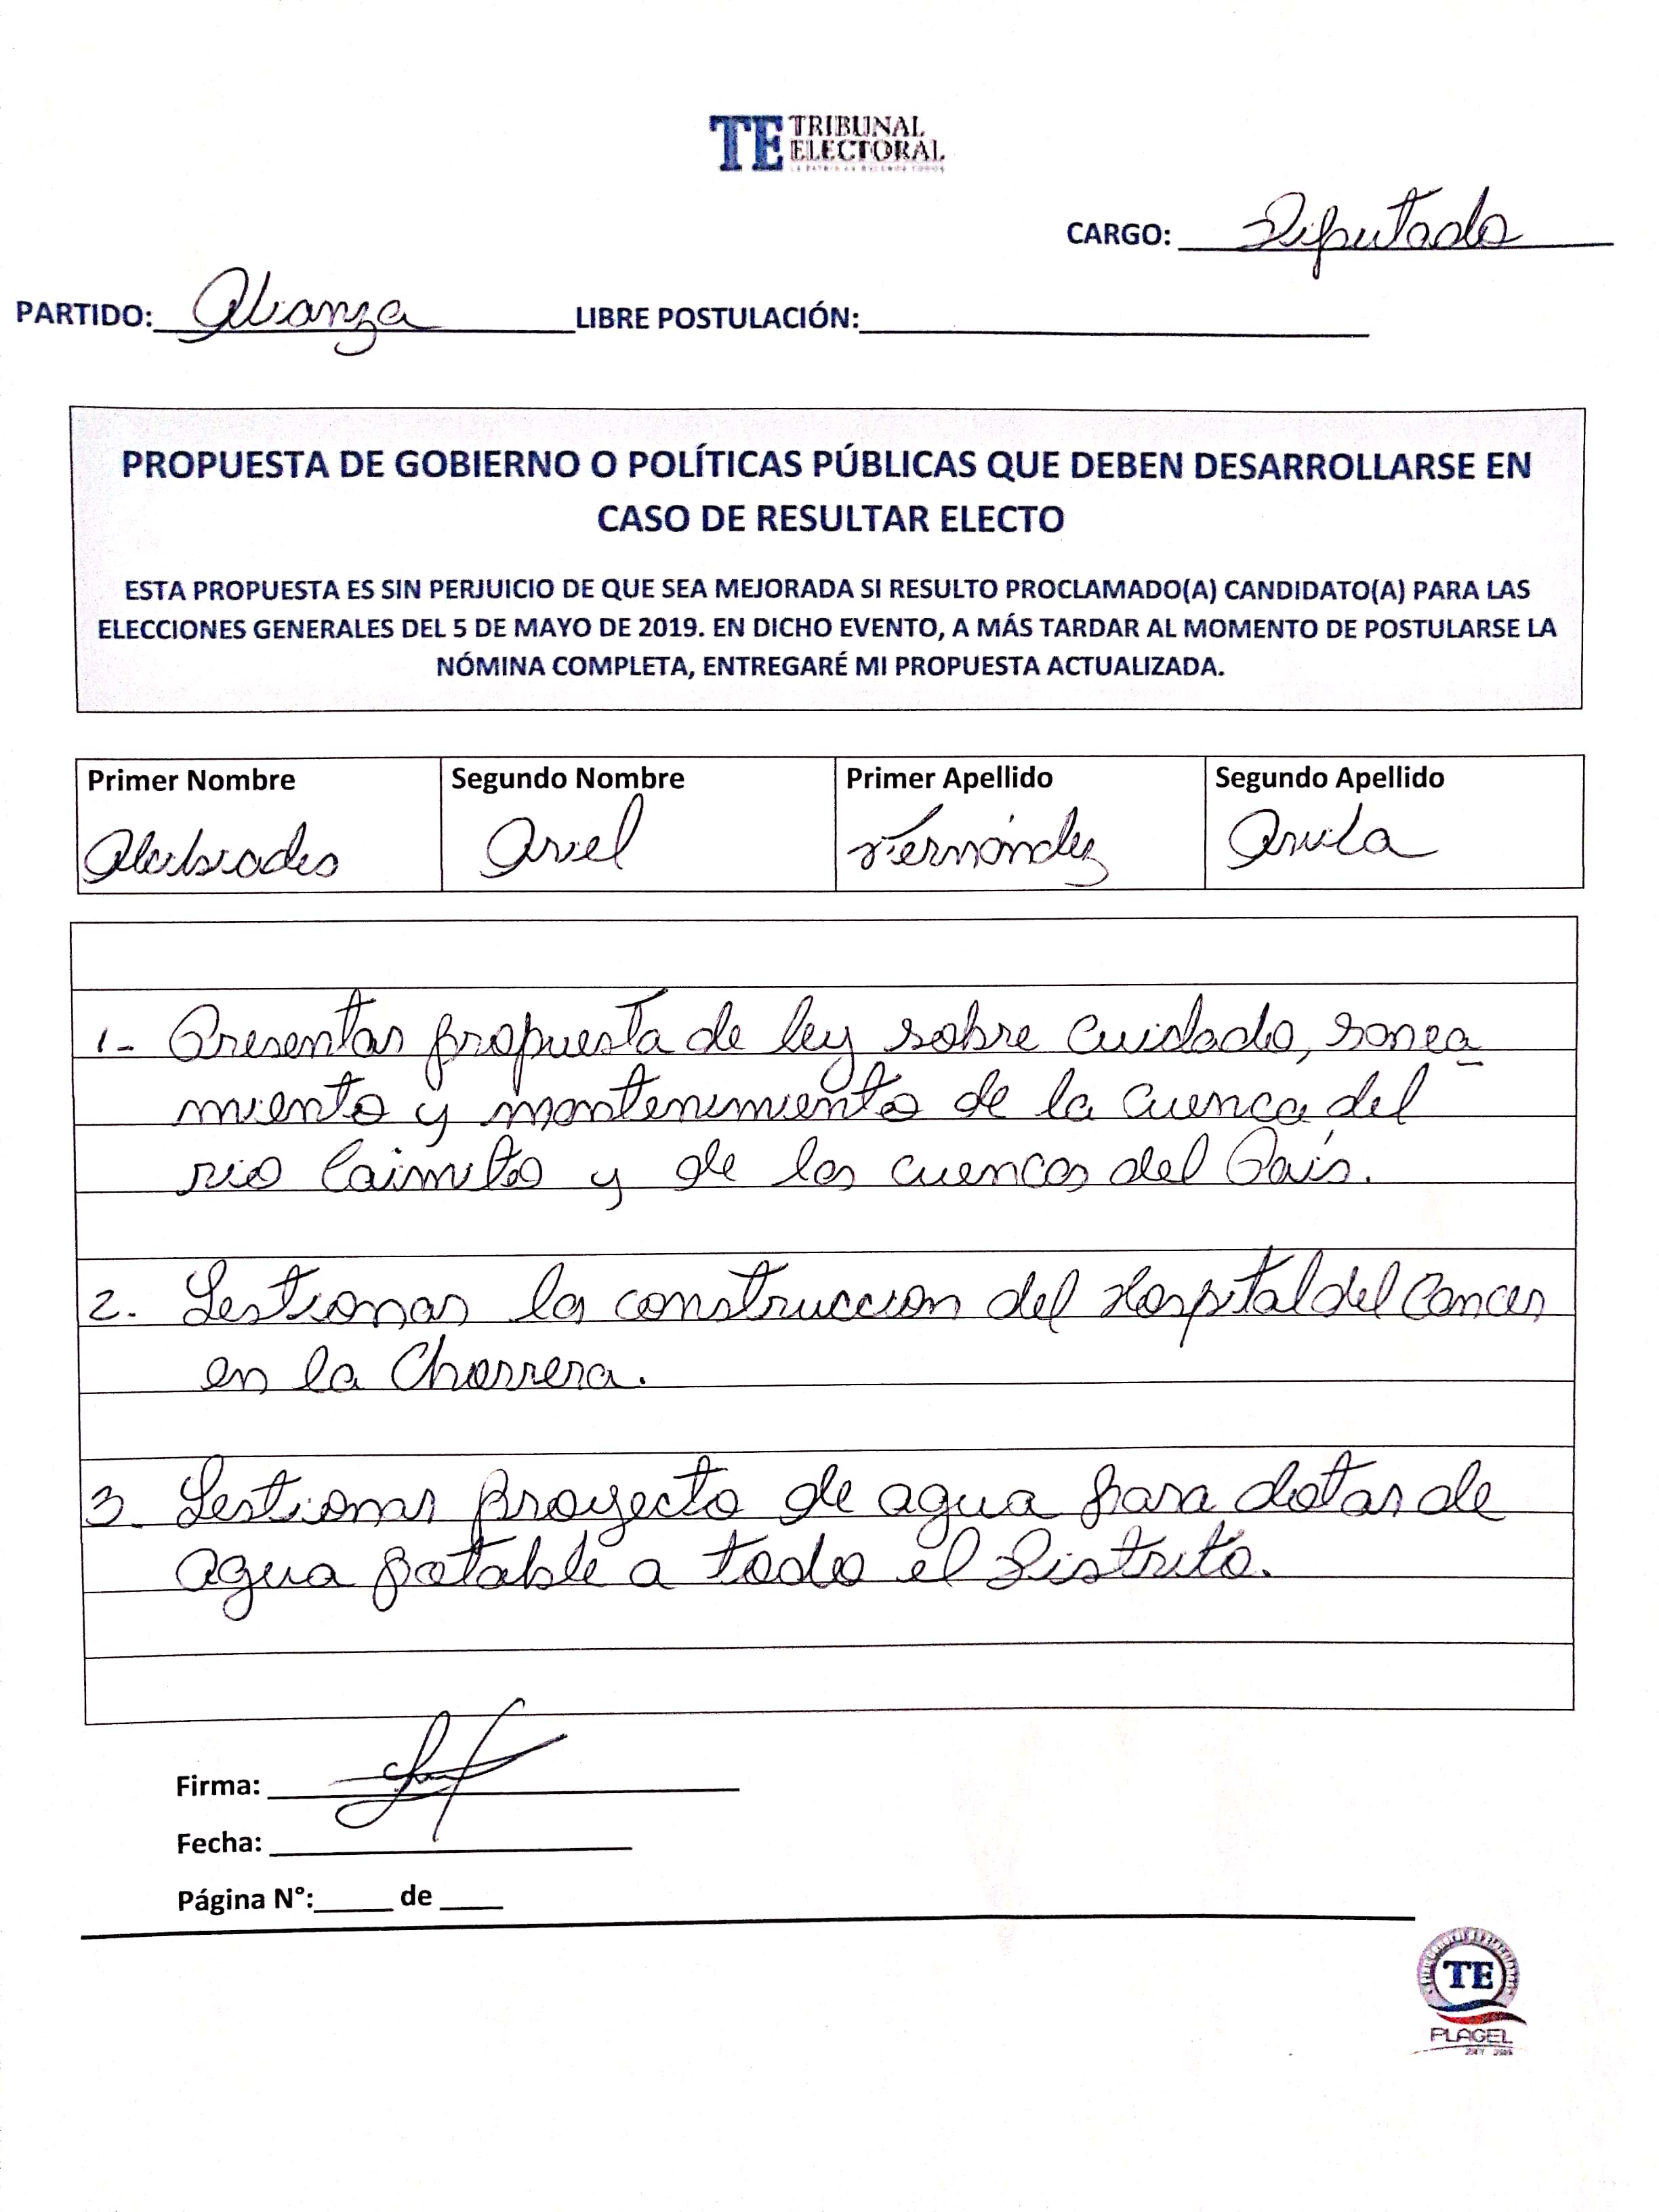 TE TRIBUNAL
ELECTORAL
LA PATRIA LA HACEMOS TODOS
CARGO: Diputado
PARTIDO: Alianza LIBRE POSTULACIÓN:
PROPUESTA DE GOBIERNO O POLÍTICAS PÚBLICAS QUE DEBEN DESARROLLARSE EN
CASO DE RESULTAR ELECTO
ESTA PROPUESTA ES SIN PERJUICIO DE QUE SEA MEJORADA SI RESULTO PROCLAMADO(A) CANDIDATO(A) PARA LAS
ELECCIONES GENERALES DEL 5 DE MAYO DE 2019. EN DICHO EVENTO, A MÁS TARDAR AL MOMENTO DE POSTULARSE LA
NÓMINA COMPLETA, ENTREGARÉ MI PROPUESTA ACTUALIZADA.
Primer Nombre Segundo Nombre Primer Apellido Segundo Apellido
Alcibiades Ariel Fernández Avila
1- Presentar propuesta de ley sobre cuidado, sanea
miento y mantenimiento de la cuenca del
rio Caimito y de las cuencas del País.
2. Gestionar la construccion del Hospital del Cancer
en la Chorrera.
3. Gestionar proyecto de agua para dotar de
agua potable a todo el Distrito.
Firma:
Fecha:
Página N°: de
TE
PLAGEL